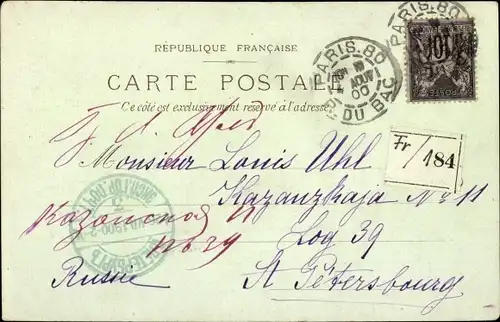 RÉPUBLIQUE FRANÇAISE
CARTE POSTALE
Ce côté est exclusivement réservé à l'adresse
PARIS.80
DU BAC
PARIS.80
Fr / 184
Monsieur Louis Uhl
Kazanzkaja No 11
Казанская 11
Log 39
Russie
St Pétersbourg